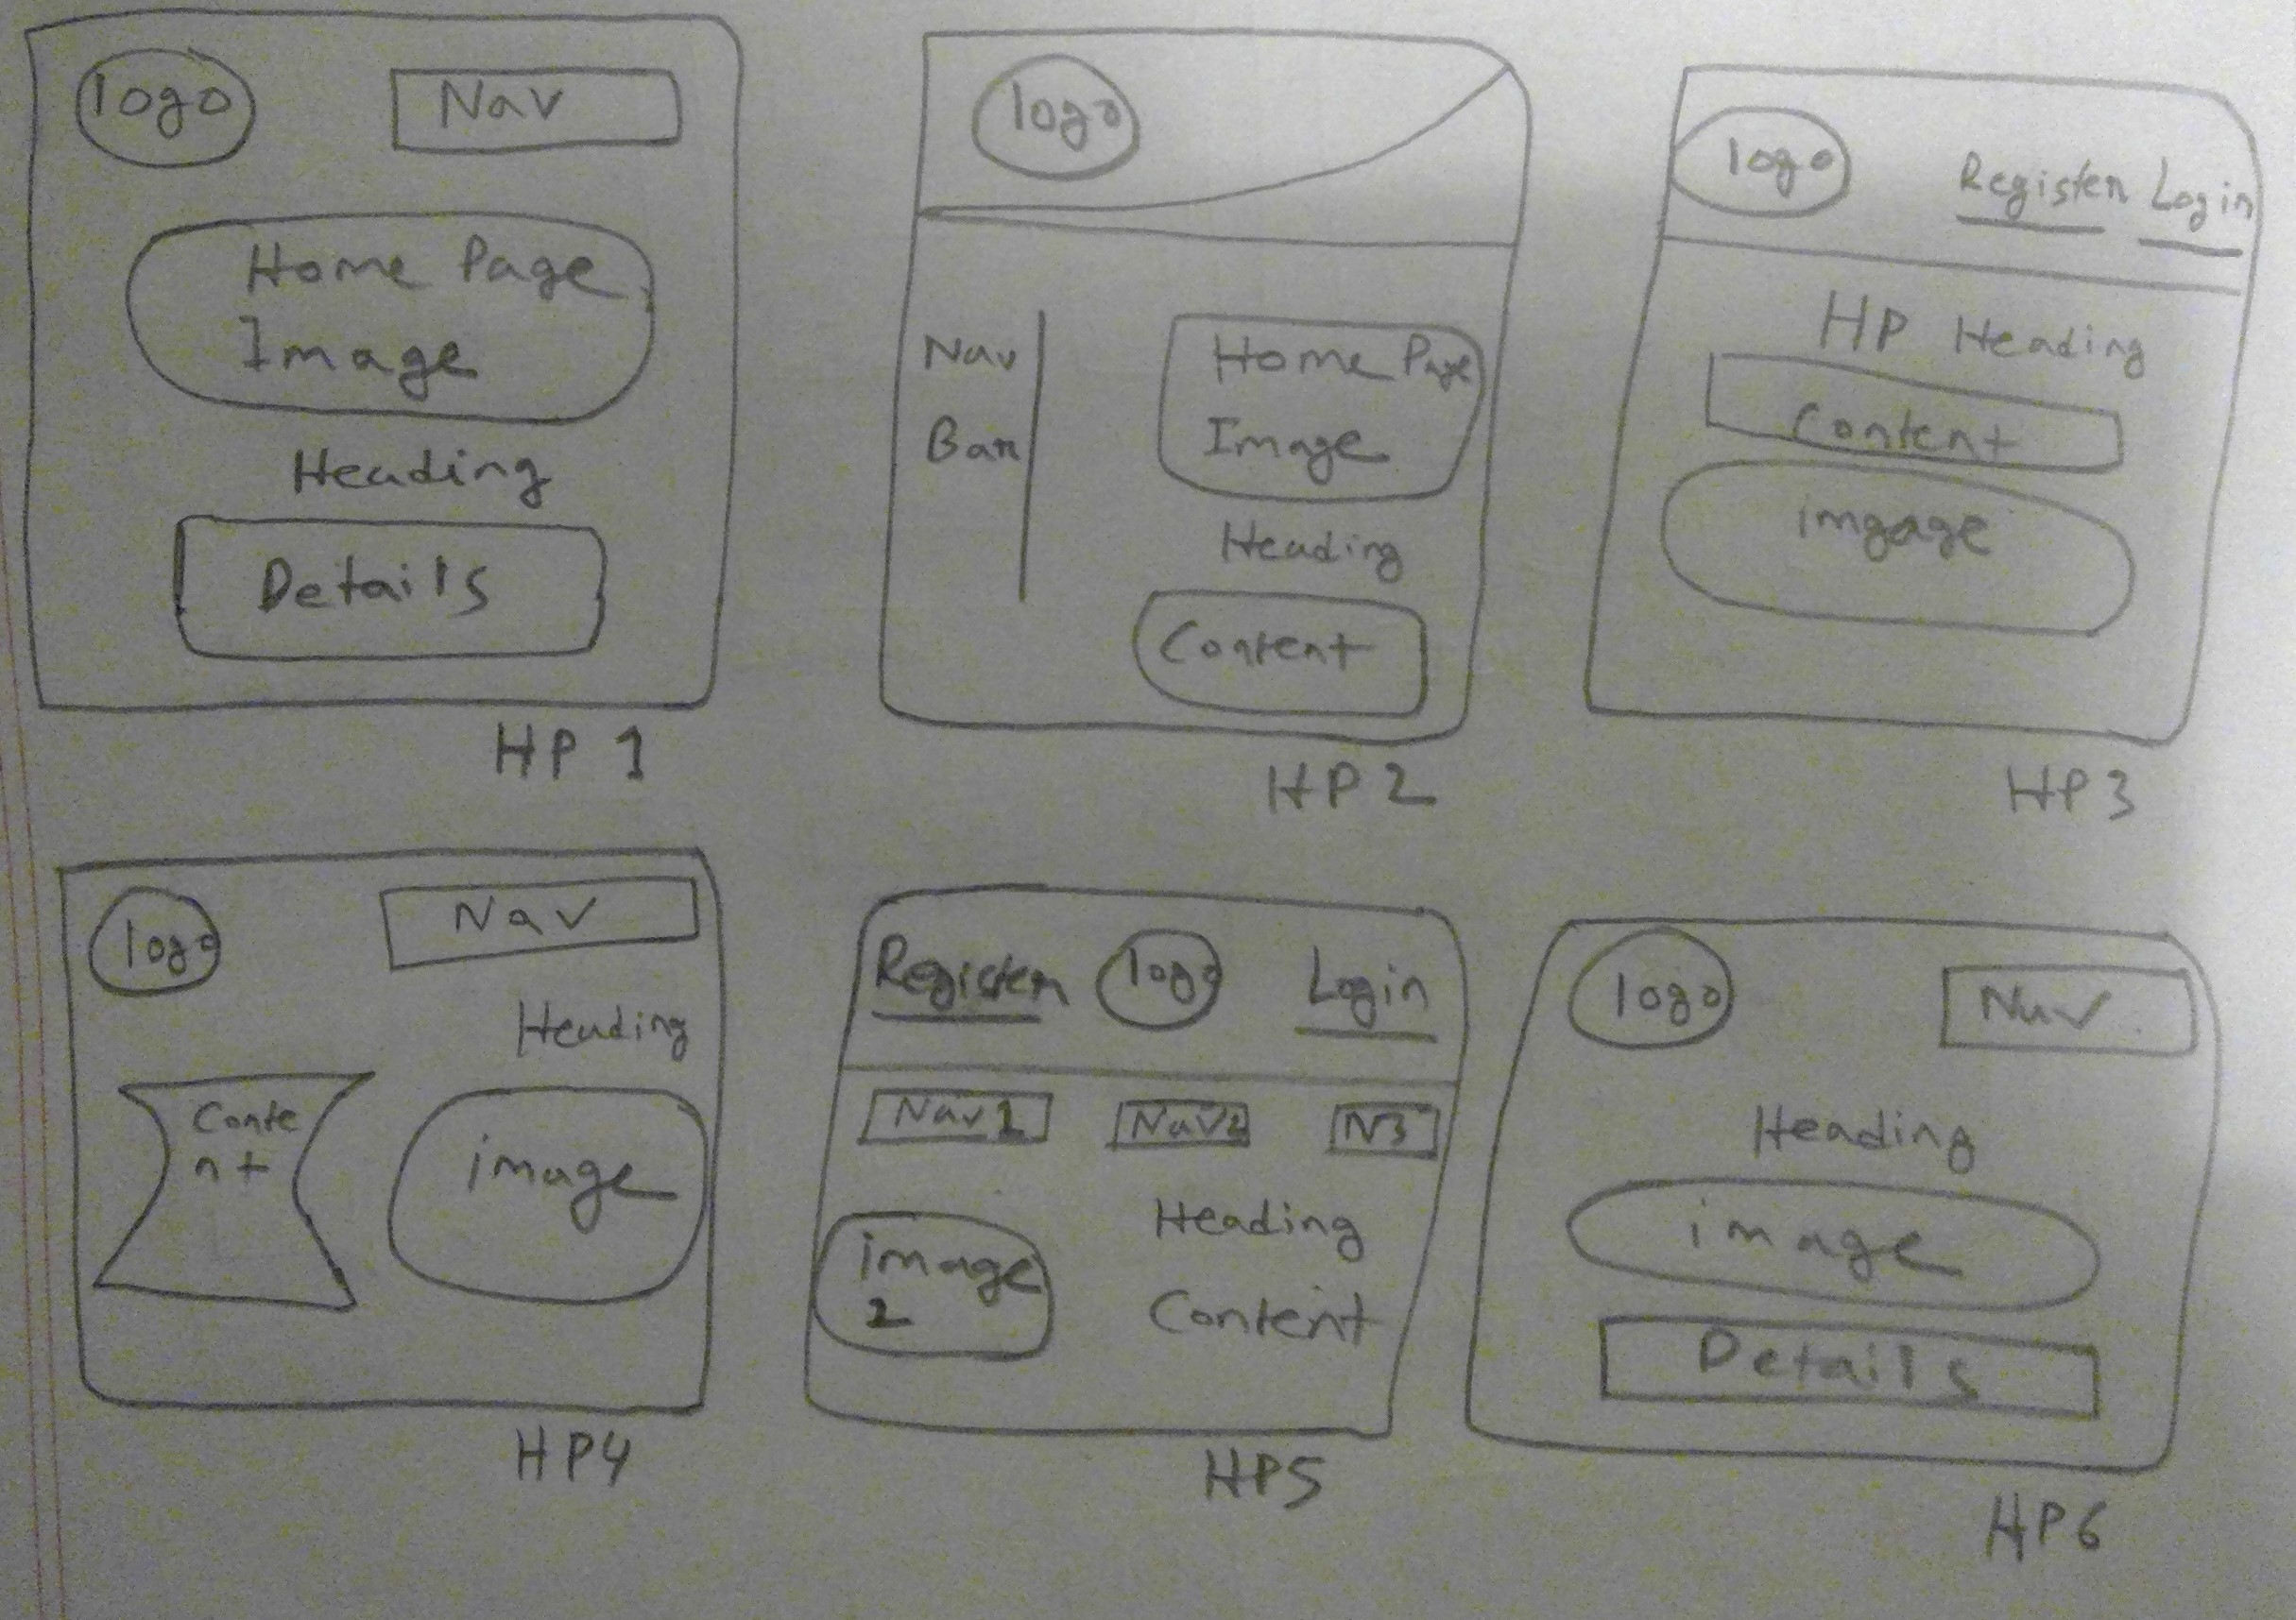 logo
Nav
Home Page
Image
Heading
Details
HP 1
logo
Nav
Bar
Home Page
Image
Heading
Content
HP 2
logo
Register Login
HP Heading
Content
imgage
HP 3
logo
Nav
Heading
Conte
nt
image
HP4
Register logo Login
Nav1 Nav2 N3
image
2
Heading
Content
HP5
logo
Nav
Heading
image
Details
HP6